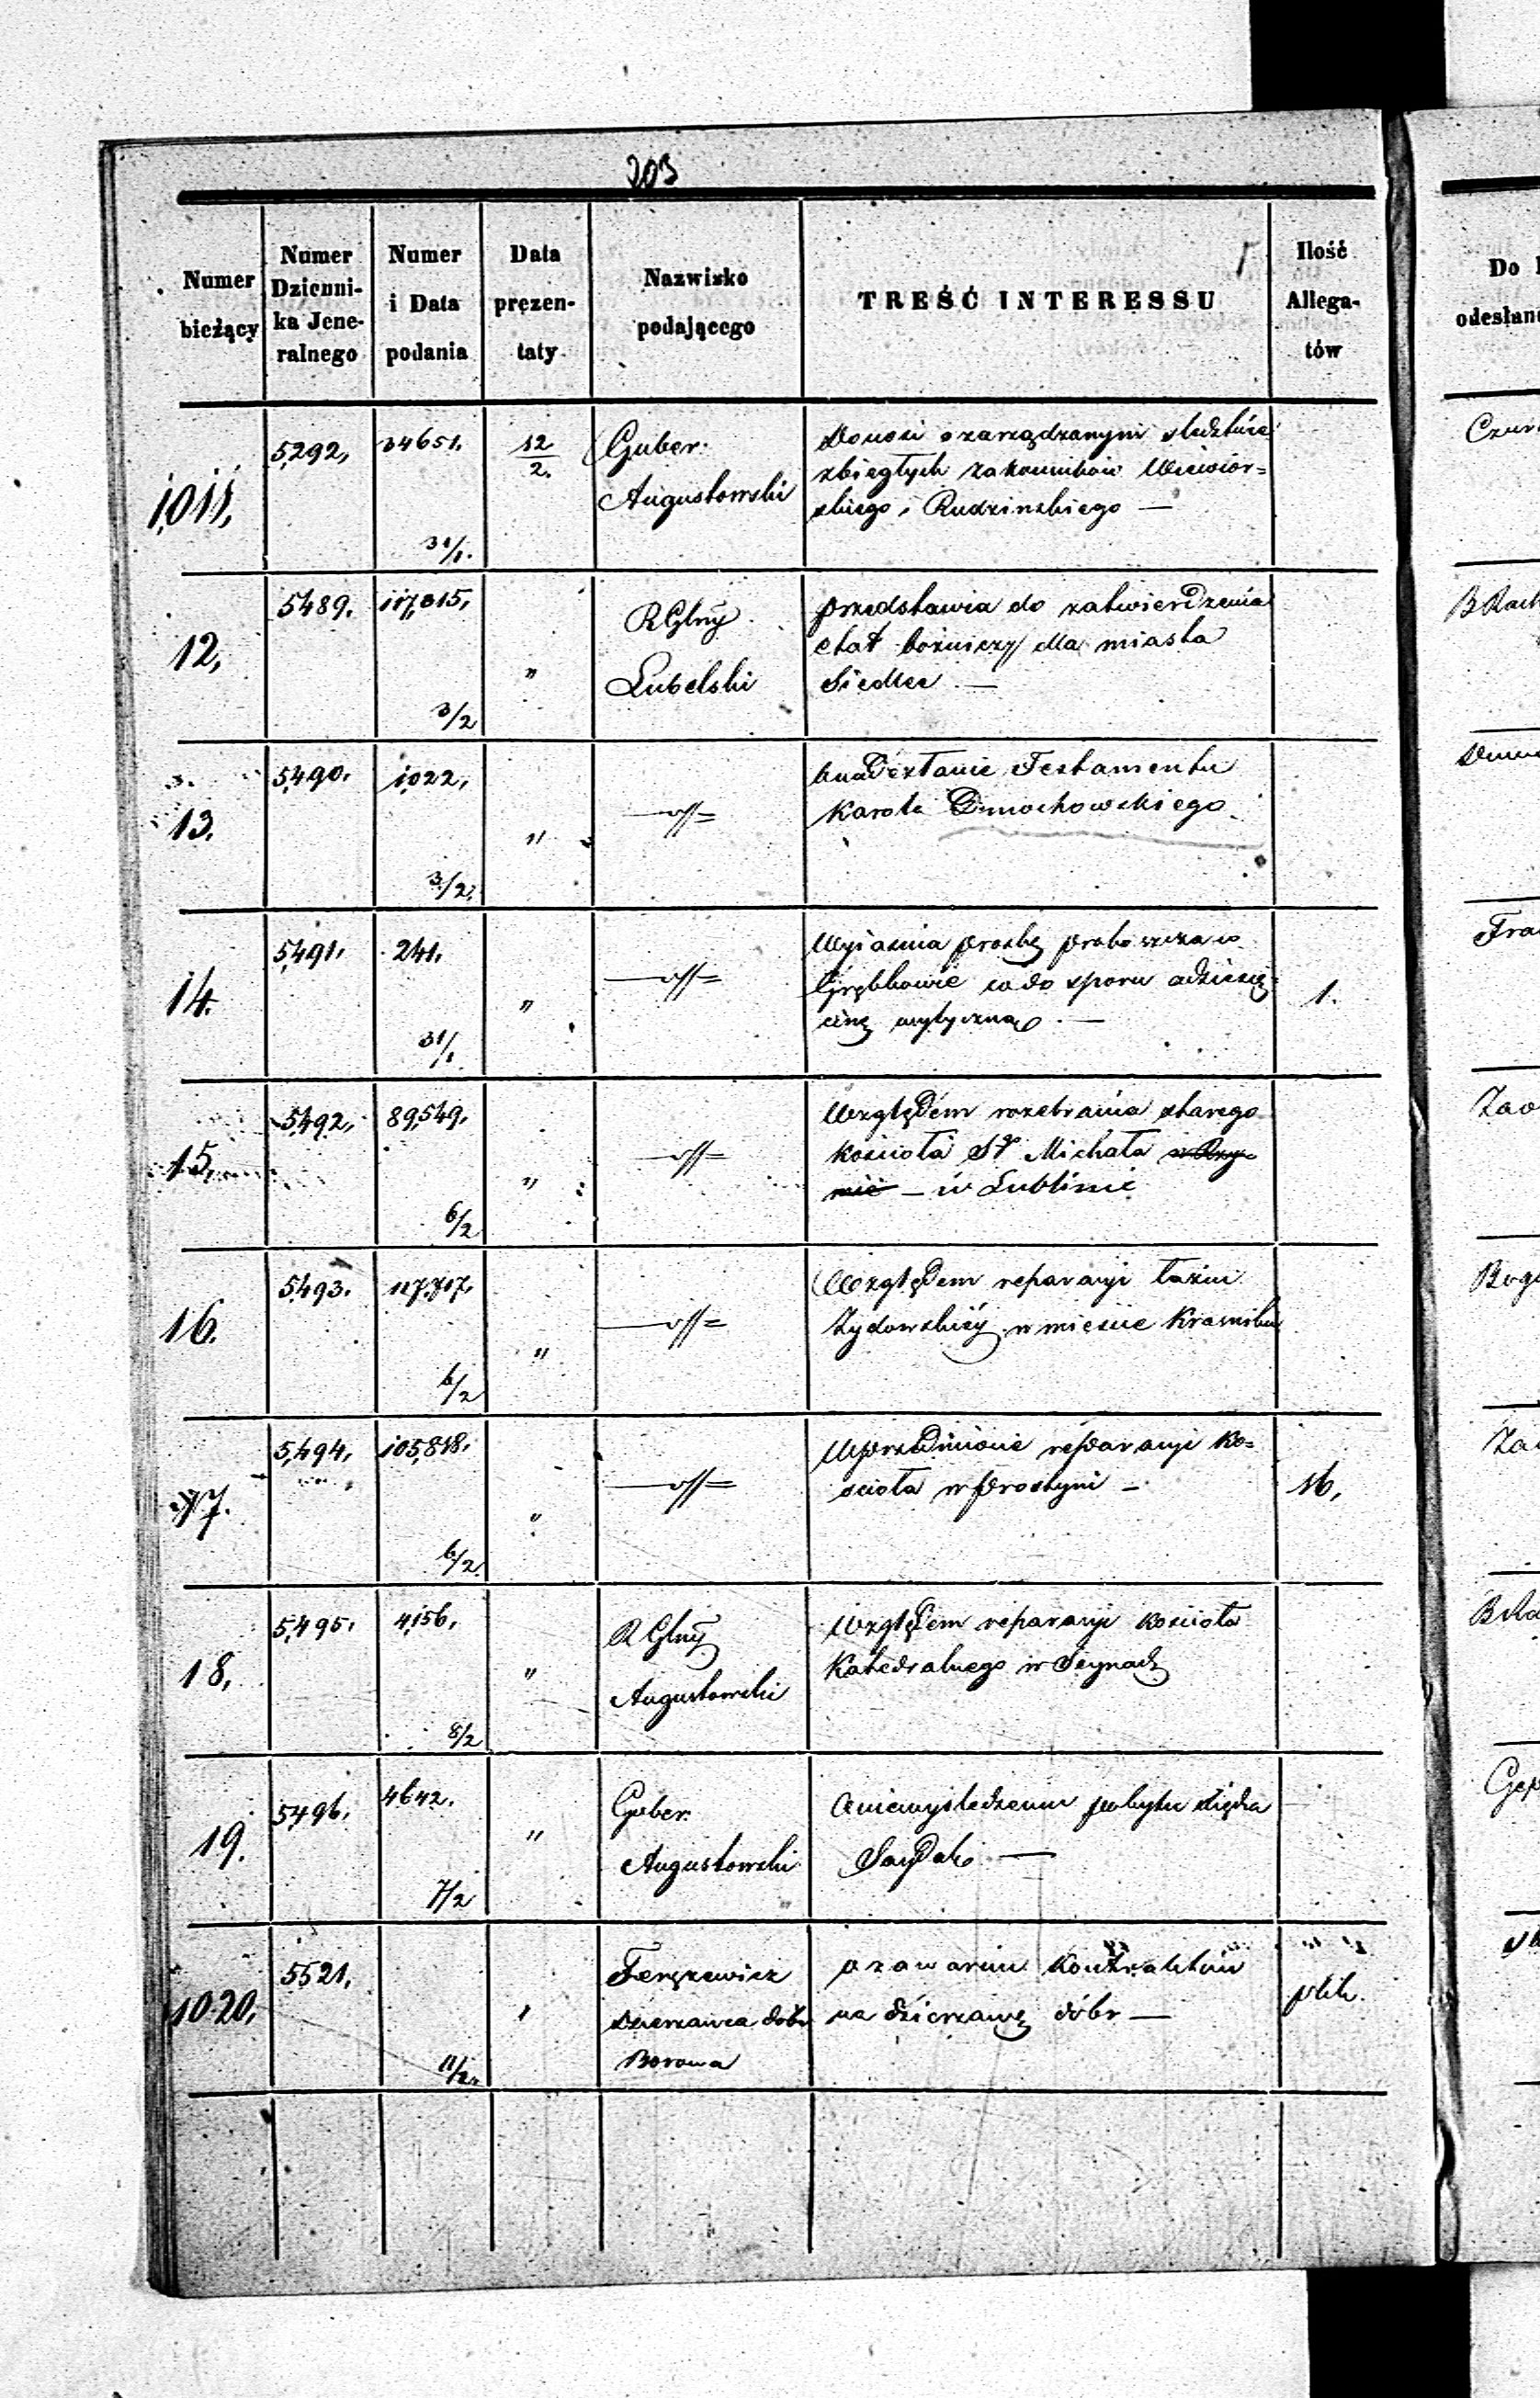 203
Numer bieżący | Numer Dziennika Jeneralnego | Numer i Data podania | Data prezentaty | Nazwisko podającego | TREŚĆ INTERESSU | Ilość Allegatów
1011, 5292, 34651. 31/1. 12/2. Guber.
Augustowski
Donosi o zarządzonym śledztwie
zbiegłych zakonników Wiewior=
skiego i Rudzinskiego —
12, 5489. 3/2 " RGlny
Lubelski
przedstawia do zatwierdzenia
etat bożniczy dla miasta
Siedlec —
13. 5490. 1022, 3/2. "
Testamentu
Karola Dmochowskiego
14. 5491. 241. 31/1. "
Wyjasnia prosbę proboszcza w
Grębkowie co do sporu o dziesię=
cinę wytyczną. —
1.
15, 5492, 89,549. 6/2 "
Względem rozebrania starego
kościoła Sgo Michała
— w Lublinie
16. 5493. 6/2 "
Względem reparacyi łazni
Żydowskiéy w miescie Krasniku
17. 5,494. 105,818. 6/2. "
reparacyi ko=
scioła w Prostyni —
16,
18, 5,495. 4156. 8/2 " R Glny
Augustowski
Względem reparacyi kościoła
Katedralnego w Seynach
19. 5496. 4642. 7/2 " Guber.
Augustowski
O niewyśledzeniu pobytu xiędza
—
1020. 5521, 11/2. "
dzierzawca dóbr
Borowa
o zawarciu kontraktów
na dzierzawę dóbr —
Do
odesłan